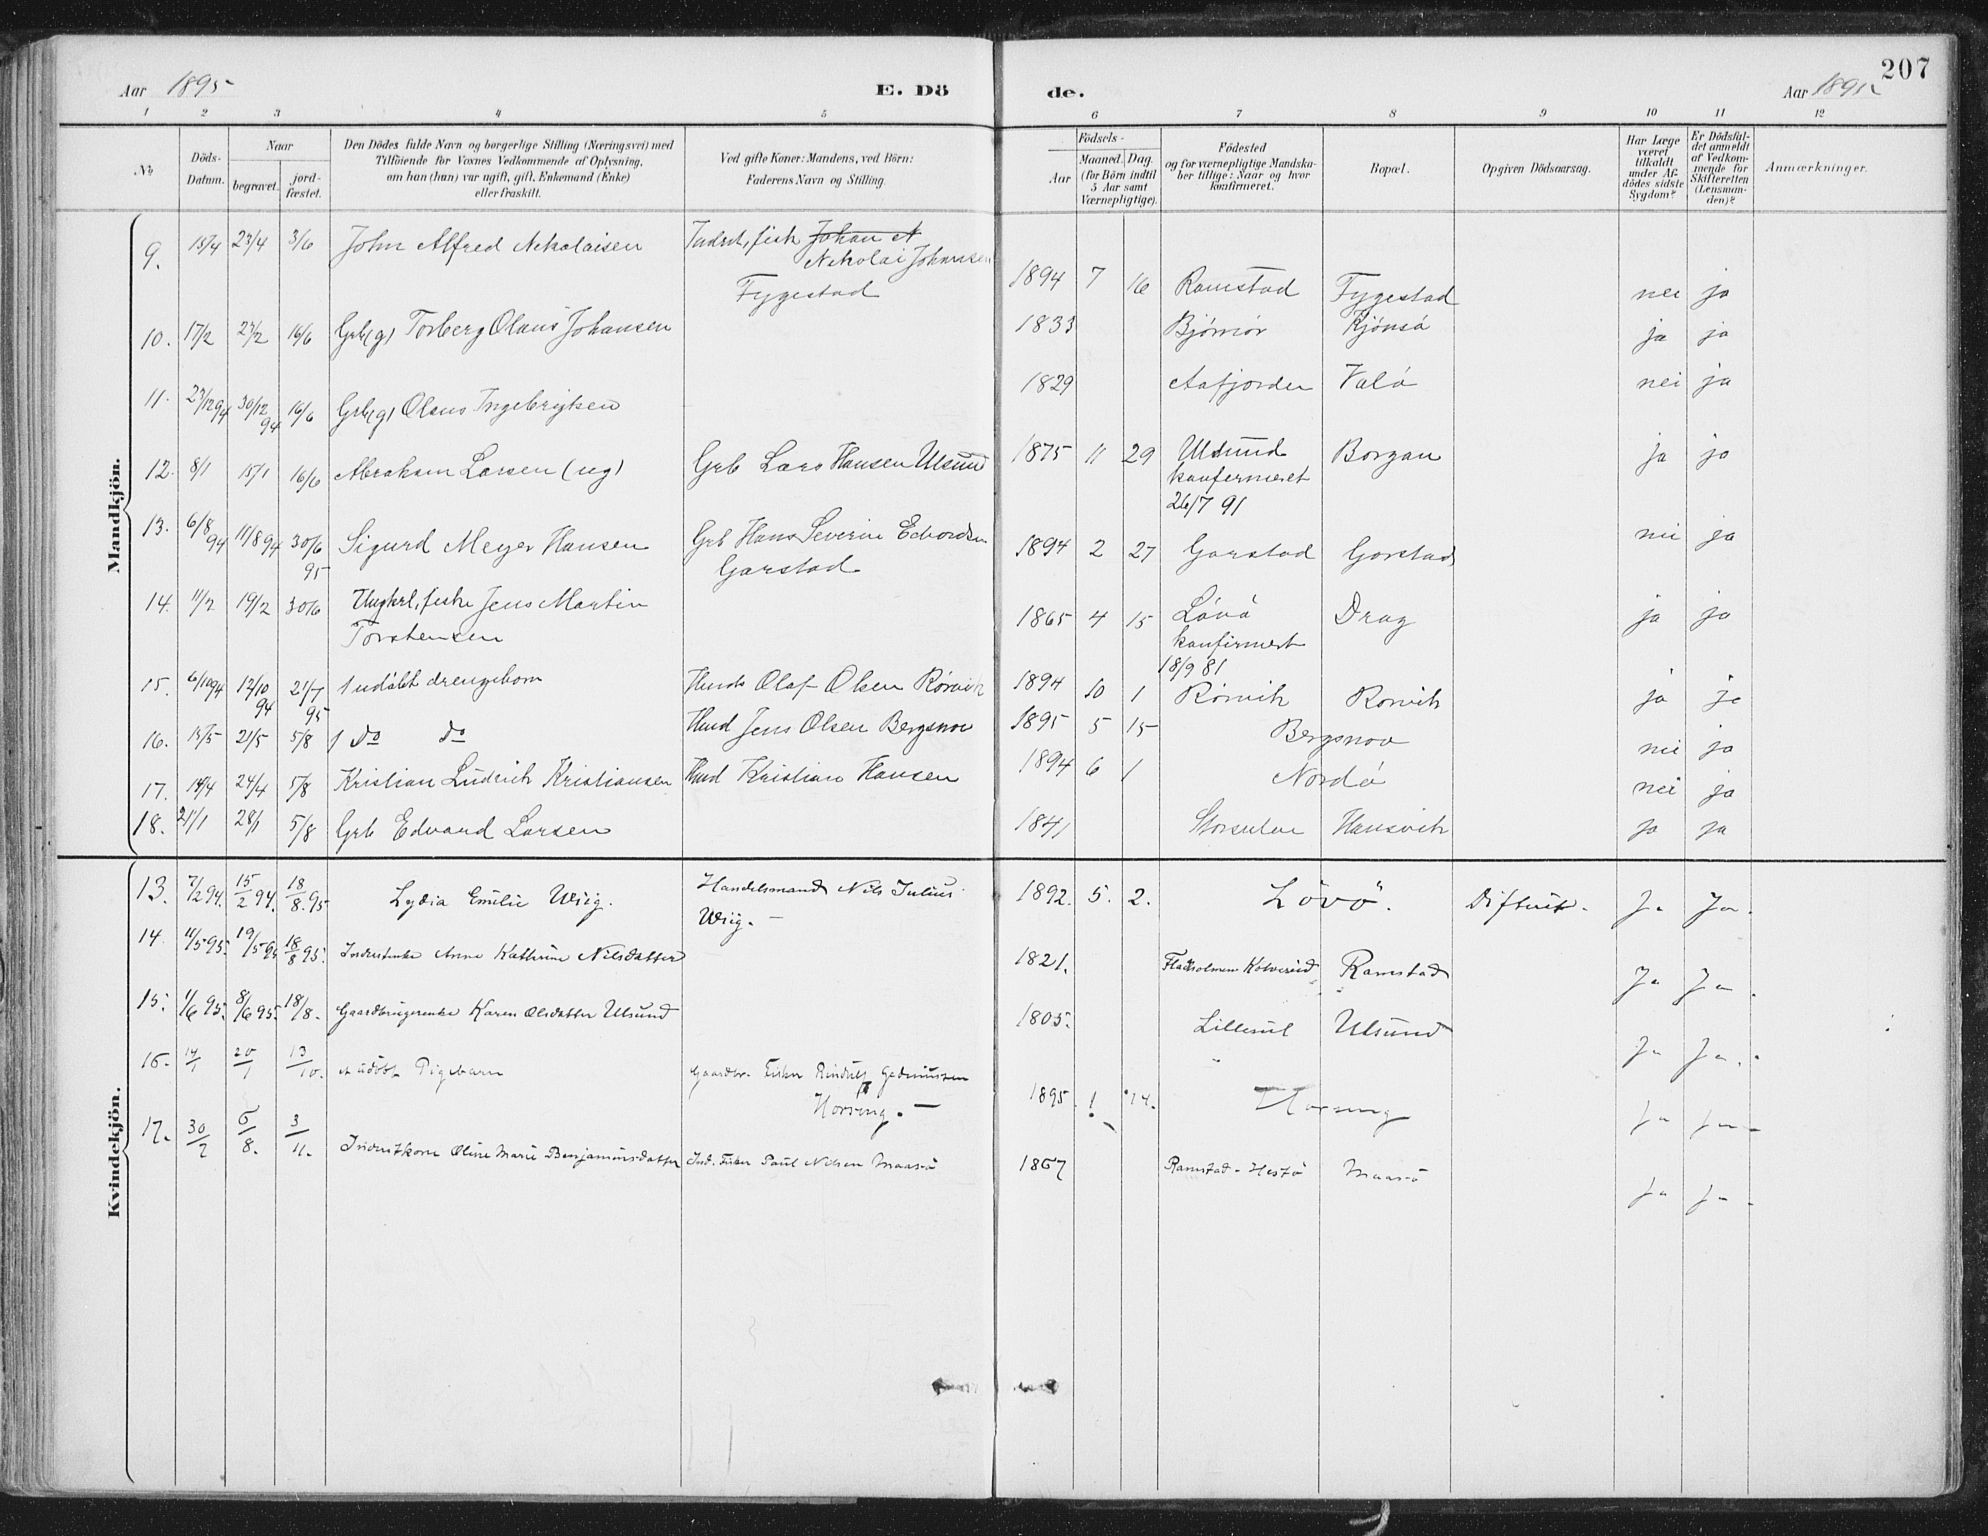 207
Aar 1895 E. Dö de. Aar 1895
1 2 3 4 5 6 7 8 9 10 11 12
No Döds-Datum. Naar begravet. jord-fæstet. Den Dödes fulde Navn og borgerlige Stilling (Næringsvei) med Tilföiende for Voxnes Vedkommende af Oplysning, om han (hun) var ugift, gift, Enkemand (Enke) eller fraskilt. Ved gifte Koner: Mandens, ved Börn: Faderens Navn og Stilling. Födsels- Aar Maaned. Dag. (for Börn indtil 5 Aar samt Værnepligtige). Födested og for værnepligtige Mandskaber tillige: Naar og hvor konfirmeret. Bopæl. Opgiven Dödsaarsag. Har Læge været tilkaldt under Afdödes sidste Sygdom? Er Dödsfaldet anmeldt af Vedkommende for Skifteretten (Lensmanden)? Anmærkninger.
Mandkjön.
9. 15/4 23/4 3/6 John Alfred Nikolaisen Inderst, fisk Johan N Nikolai Johansen Fygestad 1894 7 16 Ramstad Fygestad nei ja
10. 17/2 27/2 16/6 Grb (g) Torberg Olaus Johansen 1833 Bjørnør Kjønsø ja ja
11. 23/12 94 30/12 94 16/6 Grb (g) Olaus Ingebrigtsen 1829 Aafjorden Valø nei ja
12. 8/1 15/1 16/6 Abraham Larsen (ug) Grb Lars Hansen Ulsund 1875 11 29 Ulsund konfirmeret 26/7 91 Borgan ja ja
13. 6/8 94 11/8 94 30/6 95 Sigurd Meyer Hansen Grb Hans Severin Edvardsen Garstad 1894 2 27 Garstad Garstad nei ja
14. 11/2 19/2 30/6 Ungkrl, fisker Jens Martin Torstensen 1865 4 15 Løvø konfirmert 18/9 81 Drag ja ja
15. 6/10 94 12/10 94 21/7 95 1 udøbt drengebarn Husb Olaf Olsen Rørvik 1894 10 1 Rørvik Rørvik ja ja
16. 15/5 21/5 5/8 1 do do Husb Jens Olsen Bergsnov 1895 5 15 Bergsnov nei ja
17. 14/4 24/4 5/8 Kristian Ludvik Kristiansen Husb Kristian Hansen 1894 6 1 Nordø nei ja
18. 21/1 28/1 5/8 Grb Edvard Larsen 1841 Hansvik ja ja
Kvindekjön.
13. 7/2 94. 15/2 94. 18/8 95 Lydia Emilie Wiig. Handelsmand Nils Julius Wiig. — 1892. 5. 2. Lövö. Difterit. Ja Ja.
14. 11/5 95. 19/5 95 18/8 95. Inderstenke Anne Kathrine Nilsdatter 1821. Flatholmen Kolvereid Ramstad Ja Ja.
15. 1/6 95. 8/6 95. 18/8. Gaardbrugerenke Karen Olsdatter Ulsund 1805. Ulsund Ja Ja.
16. 14/1 20/1 13/10. et udöbt Pigebarn Gaardbr. Fisker Horseng. — 1895. 1. 14. Horseng Ja Ja
17. 30/7 6/8. 3/11. Inderstkone Oline Marie Benjaminsdatter Ind. Fisker Paul Nilsen Maasö 1867 Ramstad - Hestö Maasö Ja Ja.